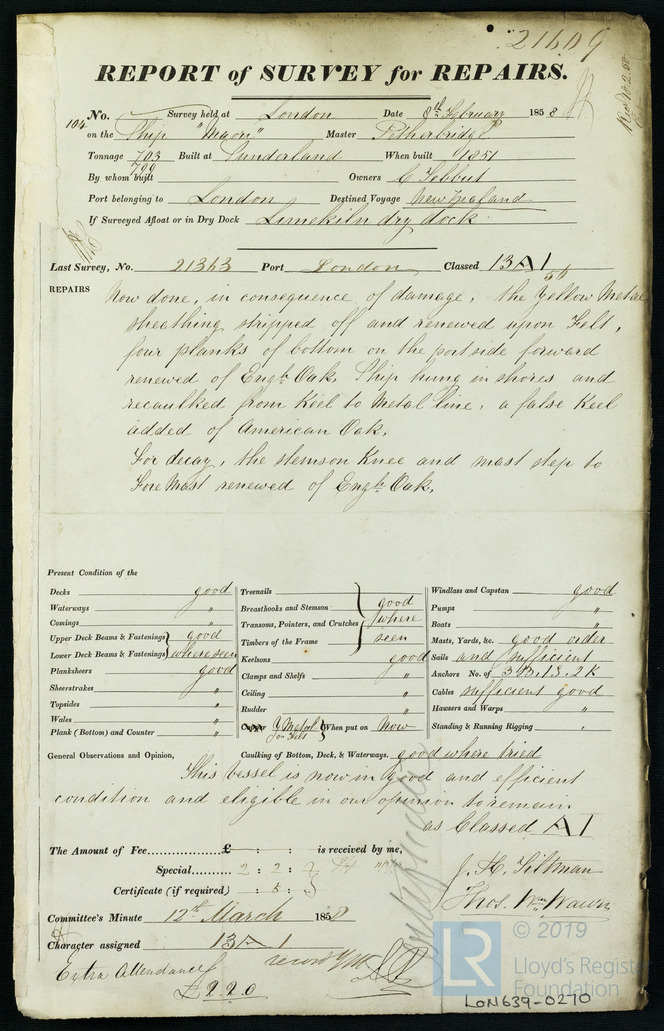 21609
REPORT of SURVEY for REPAIRS.
No. Survey held at London Date 8th February 1858
104 on the Ship "Maori" Master Petherbridge
Tonnage 703 Built at Sunderland When built 1851
799
By whom built Owners C Tebbut
Port belonging to London Destined Voyage New Zealand
If Surveyed Afloat or in Dry Dock Limekiln dry dock
Last Survey, No. 21363 Port London Classed 13 A 1
REPAIRS Now done, in consequence of damage, the Yellow Metal
sheathing stripped off and renewed upon Felt,
four planks of bottom on the port side forward
renewed of Engh. Oak, Ship hung in shores and
recaulked from Keel to Metal line, a false Keel
added of American Oak.
For decay, the stemson Knee and mast step to
Fore Mast renewed of Engh. Oak.
Present Condition of the
Decks good
Waterways "
Comings "
Upper Deck Beams & Fastenings good
Lower Deck Beams & Fastenings where seen
Planksheers good
Sheerstrakes "
Topsides "
Wales "
Plank (Bottom) and Counter "
Treenails
Breasthooks and Stemson good
Transoms, Pointers, and Crutches where
Timbers of the Frame seen
Keelsons good
Clamps and Shelfs "
Ceiling "
Rudder "
Copper Y Metal on Felt When put on Now
Windlass and Capstan good
Pumps "
Boats "
Masts, Yards, &c. good order
Sails and sufficient
Anchors No. of 3 B, 1 S, 2 K
Cables sufficient good
Hawsers and Warps "
Standing & Running Rigging "
General Observations and Opinion, Caulking of Bottom, Deck, & Waterways. good where tried
This vessel is now in good and efficient
condition and eligible in our opinion to remain
as Classed A 1
The Amount of Fee £ : : is received by me,
Special 2 : 2 :
Certificate (if required) : 5 :
J. H. Tiltman
Thos. Wm. Wawn
Committee's Minute 12th March 1858
Character assigned 13 A 1
Extra Attendance
£2.2.0
© 2019
LR
Lloyd's Register
Foundation
LON639-0270